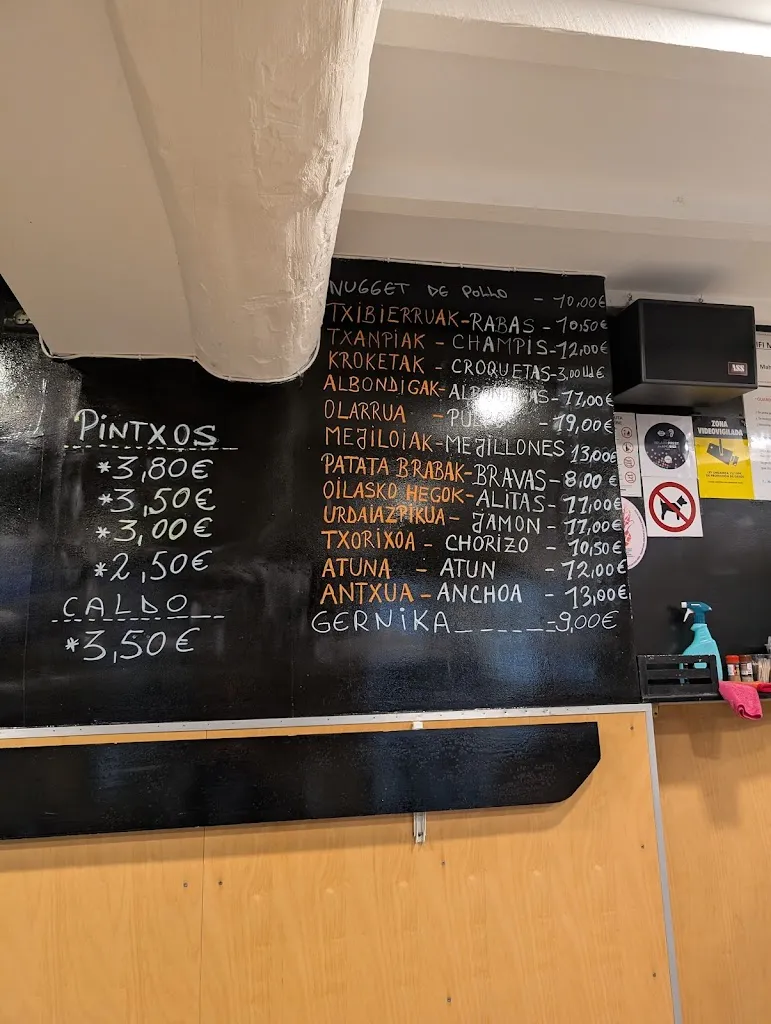 PiNTXOS
*3,80€
*3,50€
*3,00€
*2,50€
CALDO
*3,50€
NUGGET DE POLLO - 10,00€
TXIBIERRUAK-RABAS - 10,50€
TXANPIAK - CHAMPIS-12,00€
KROKETAK - CROQUETAS-3,00 Ud€
ALBONDIGAK- 11,00€
OLARRUA - 19,00€
MEJILOIAK-MEJILLONES 13,00€
PATATA BRABAK-BRAVAS- 8,00 €
OILASKO HEGOK-ALITAS- 11,00€
URDAIAZPIKUA- JAMON - 17,00€
TXORIXOA - CHORIZO - 10,50€
ATUNA - ATUN - 12,00€
ANTXUA-ANCHOA - 13,00€
GERNiKA 9,00€
ZONA
VIDEOVIGILADA